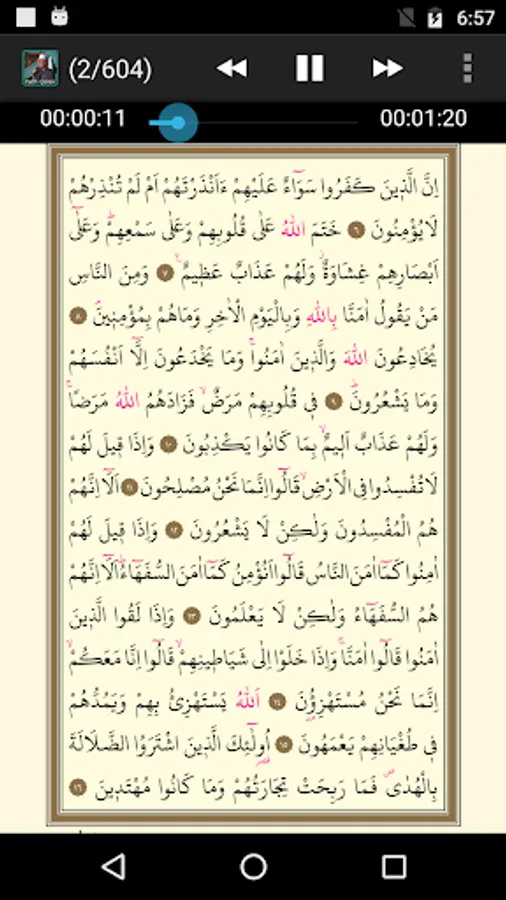 6:57
(2/604)
00:00:11 00:01:20
اِنَّ الَّذ۪ينَ كَفَرُوا سَوَٓاءٌ عَلَيْهِمْ ءَاَنْذَرْتَهُمْ اَمْ لَمْ تُنْذِرْهُمْ
لَا يُؤْمِنُونَ ﴿٦﴾ خَتَمَ اللّٰهُ عَلٰى قُلُوبِهِمْ وَعَلٰى سَمْعِهِمْۜ وَعَلٰٓى
اَبْصَارِهِمْ غِشَاوَةٌۘ وَلَهُمْ عَذَابٌ عَظ۪يمٌ۟ ﴿٧﴾ وَمِنَ النَّاسِ
مَنْ يَقُولُ اٰمَنَّا بِاللّٰهِ وَبِالْيَوْمِ الْاٰخِرِ وَمَا هُمْ بِمُؤْمِن۪ينَۢ ﴿٨﴾
يُخَادِعُونَ اللّٰهَ وَالَّذ۪ينَ اٰمَنُواۚ وَمَا يَخْدَعُونَ اِلَّٓا اَنْفُسَهُمْ
وَمَا يَشْعُرُونَۜ ﴿٩﴾ ف۪ي قُلُوبِهِمْ مَرَضٌۙ فَزَادَهُمُ اللّٰهُ مَرَضًاۚ
وَلَهُمْ عَذَابٌ اَل۪يمٌۙ بِمَا كَانُوا يَكْذِبُونَ ﴿١٠﴾ وَاِذَا ق۪يلَ لَهُمْ
لَا تُفْسِدُوا فِي الْاَرْضِۙ قَالُٓوا اِنَّمَا نَحْنُ مُصْلِحُونَ ﴿١١﴾ اَلَٓا اِنَّهُمْ
هُمُ الْمُفْسِدُونَ وَلٰكِنْ لَا يَشْعُرُونَ ﴿١٢﴾ وَاِذَا ق۪يلَ لَهُمْ
اٰمِنُوا كَمَٓا اٰمَنَ النَّاسُ قَالُٓوا اَنُؤْمِنُ كَمَٓا اٰمَنَ السُّفَهَٓاءُۜ اَلَٓا اِنَّهُمْ
هُمُ السُّفَهَٓاءُ وَلٰكِنْ لَا يَعْلَمُونَ ﴿١٣﴾ وَاِذَا لَقُوا الَّذ۪ينَ
اٰمَنُوا قَالُٓوا اٰمَنَّاۚ وَاِذَا خَلَوْا اِلٰى شَيَاط۪ينِهِمْۙ قَالُٓوا اِنَّا مَعَكُمْۙ
اِنَّمَا نَحْنُ مُسْتَهْزِؤُ۫نَ ﴿١٤﴾ اَللّٰهُ يَسْتَهْزِئُ بِهِمْ وَيَمُدُّهُمْ
ف۪ي طُغْيَانِهِمْ يَعْمَهُونَ ﴿١٥﴾ اُو۬لٰٓئِكَ الَّذ۪ينَ اشْتَرَوُا الضَّلَالَةَ
بِالْهُدٰىۖ فَمَا رَبِحَتْ تِجَارَتُهُمْ وَمَا كَانُوا مُهْتَد۪ينَ ﴿١٦﴾